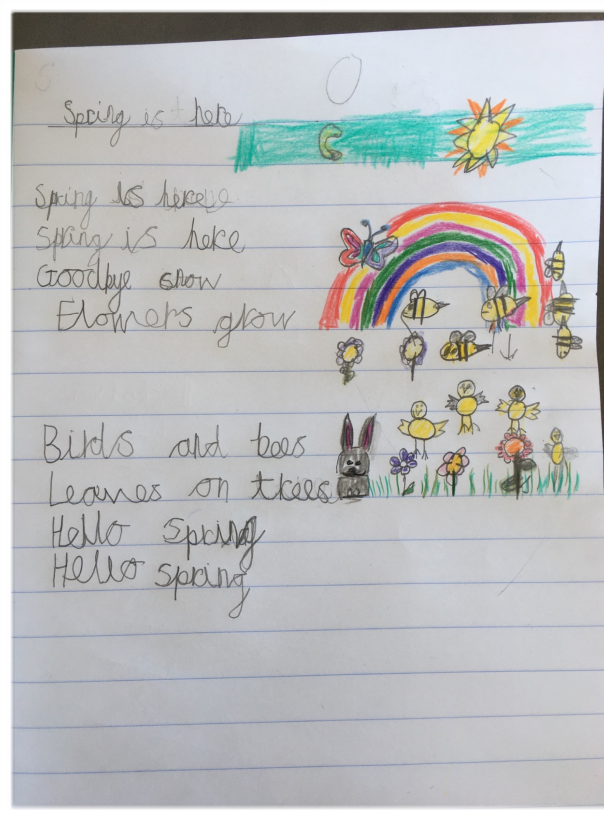 Spring is here
Spring is here
Spring is here
Goodbye snow
Flowers grow
Birds and bees
Leaves on trees
Hello Spring
Hello spring